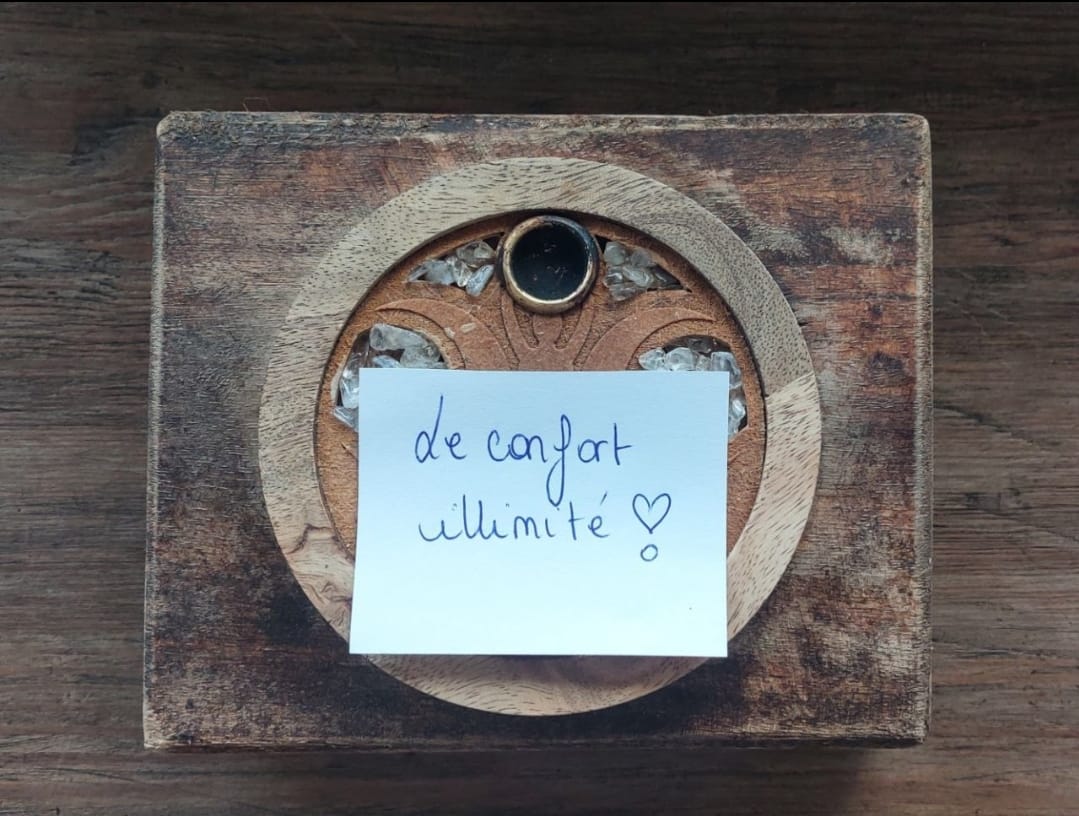 Le confort
illimité ♡